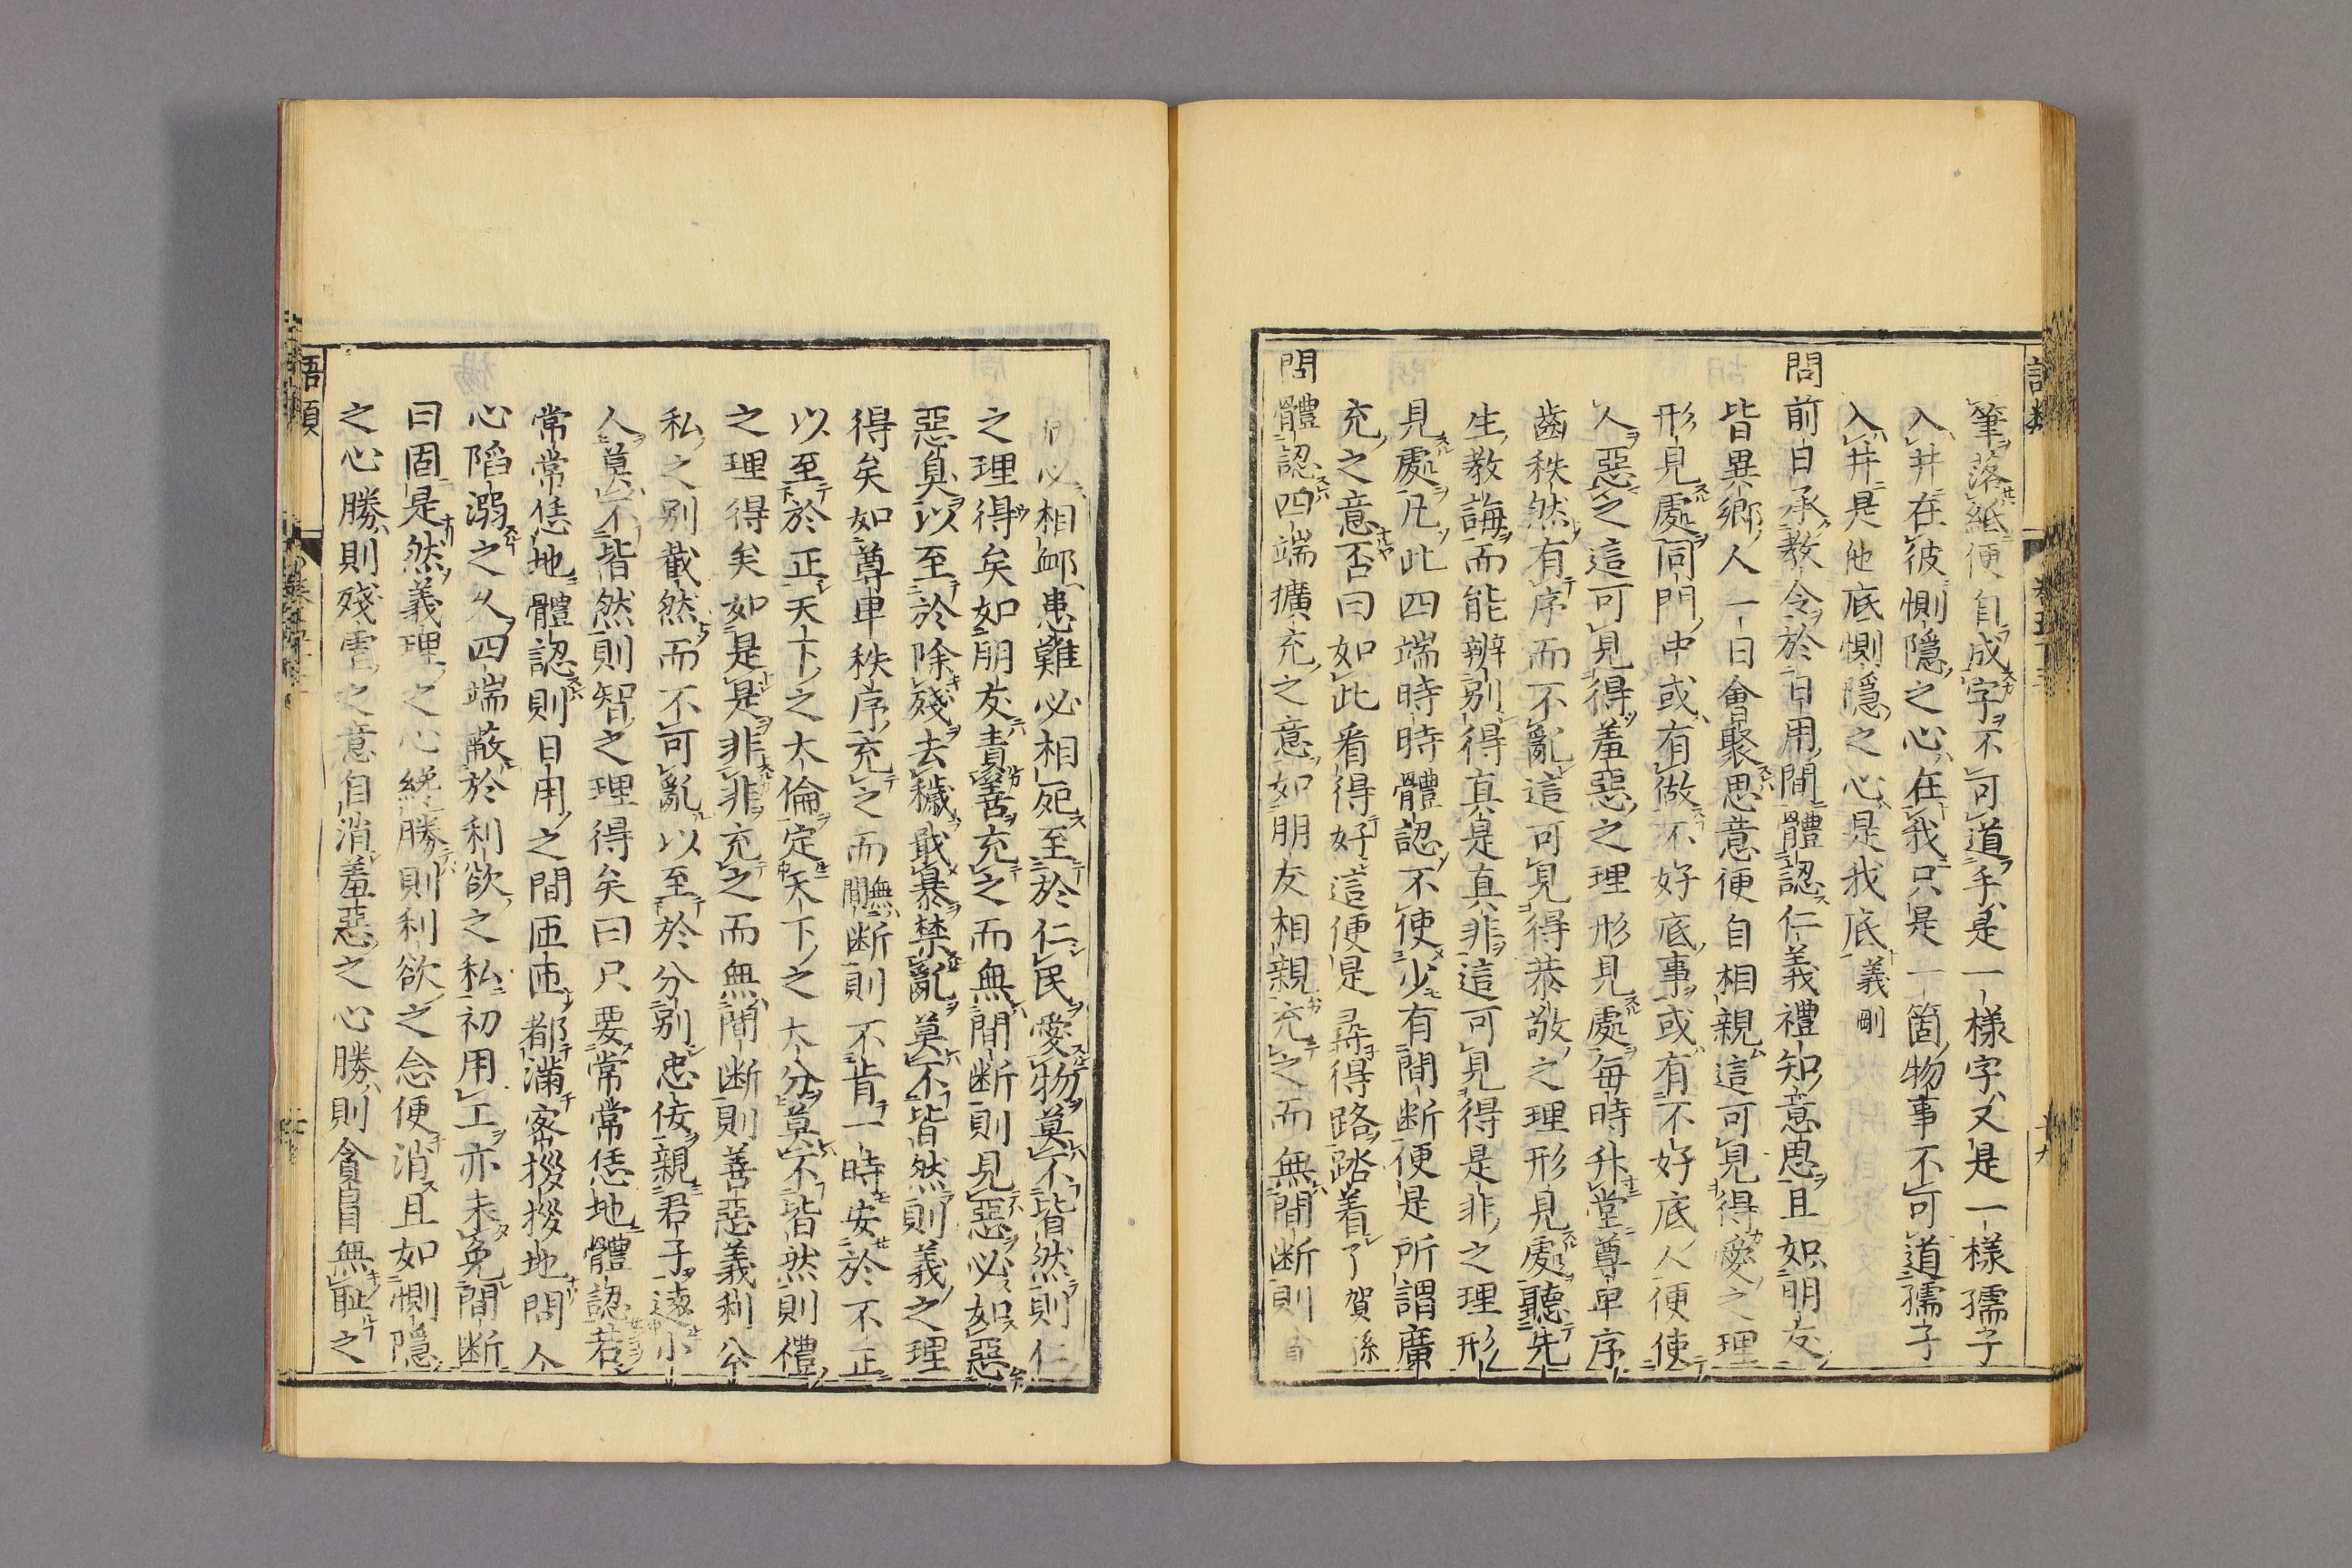 語類
筆落紙便自成字不可道手是一樣字又是一樣孺子
入井在彼惻隱之心在我只是一箇物事不可道孺子
入井是他底惻隱之心是我底義剛
問前日承教令於日用間體認仁義禮知意思且如朋友
皆異鄉人一日會聚思意便自相親這可見得愛之理
形見處同門中或有做不好底事或有不好底人便使
人惡之這可見得羞惡之理形見處每時升堂尊卑序
齒秩然有序而不亂這可見得恭敬之理形見處聽先
生教誨而能辨别得真是真非這可見得是非之理形
見處凡此四端時時體認不使少有間断便是所謂廣
充之意否曰如此看得好這便是尋得路踏着了賀孫
問體認四端擴充之意如朋友相親充之而無間断則
必相卹患難必相死至於仁民愛物莫不皆然則仁
之理得矣如朋友責善充之而無間断則見惡必如惡
惡臭以至於除殘去穢戢暴禁亂莫不皆然則義之理
得矣如尊卑秩序充之而無間断則不肯一時安於不正
以至於正天下之大倫定天下之大分莫不皆然則禮
之理得矣如是是非非充之而無間断則善惡義利公
私之别截然而不可亂以至於分别忠佞親君子遠小
人莫不皆然則智之理得矣曰只要常常恁地體認若
常常恁地體認則日用之間匝匝都滿密拶拶地問人
心陷溺之久四端蔽於利欲之私初用工亦未免間断
曰固是然義理之心纔勝則利欲之念便消且如惻隱
之心勝則殘虐之意自消羞惡之心勝則貪冒無恥之
語類